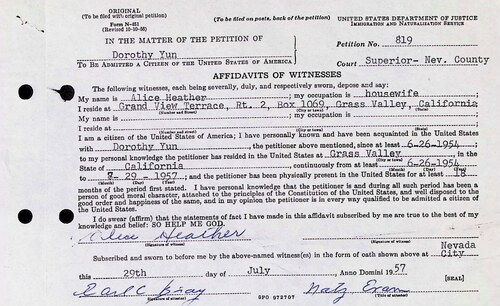 ORIGINAL
(To be filed with original petition)
(To be filed on posts, back of the petition)
UNITED STATES DEPARTMENT OF JUSTICE
IMMIGRATION AND NATURALIZATION SERVICE
Form N-451
IN THE MATTER OF THE PETITION OF
Petition No. 819
Dorothy Yun
TO BE ADMITTED A CITIZEN OF THE UNITED STATES OF AMERICA
Court Superior- Nev. County
AFFIDAVITS OF WITNESSES
The following witnesses, each being severally, duly, and respectively sworn, depose and say:
My name is Alice Heather; my occupation is housewife
I reside at Grand View Terrace, Rt. 2, Box 1069, Grass Valley, California
(Number and Street) (City or town) (State)
My name is ; my occupation is
I reside at
(Number and Street) (City or town) (State)
I am a citizen of the United States of America; I have personally known and have been acquainted in the United States
with Dorothy Yun, the petitioner above mentioned, since at least 6-26-1954
to my personal knowledge the petitioner has resided in the United States at Grass Valley
in the
State of California, continuously from at least 6-26-1954
to 7-29-1957; and the petitioner has been physically present in the United States for at least
months of the period first stated. I have personal knowledge that the petitioner is and during all such period has been a
person of good moral character, attached to the principles of the Constitution of the United States, and well disposed to the
good order and happiness of the same, and in my opinion the petitioner is in every way qualified to be admitted a citizen of
the United States.
I do swear (affirm) that the statements of fact I have made in this affidavit subscribed by me are true to the best of my
knowledge and belief: SO HELP ME GOD.
Alice Heather
(Signature of witness) (Signature of witness)
Subscribed and sworn to before me by the above-named witness(es) in the form of oath shown above at Nevada
City
this 29th day of July Anno Domini 1957
[SEAL]
GPO 972707